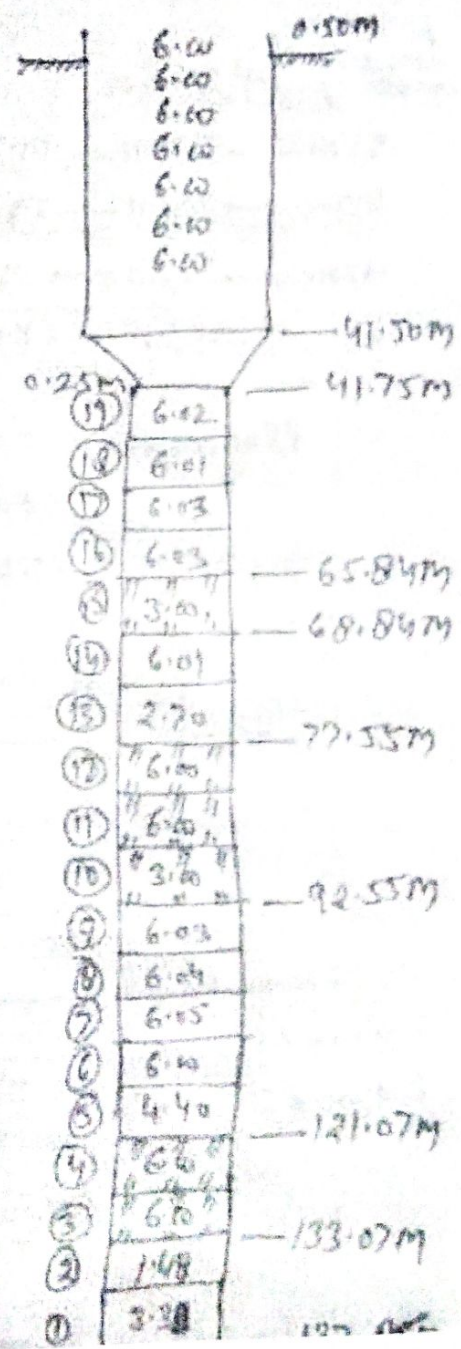 0.50M
6.00
6.00
6.00
6.00
6.00
6.00
6.00
41.50M
0.25M
41.75M
19 6.02
18 6.01
17 6.03
16 6.03
65.84M
15 3.00
68.84M
14 6.01
13 2.70
77.55M
12 6.00
11 6.00
10 3.00
92.55M
9 6.03
8 6.04
7 6.05
6 6.00
5 4.40
121.07M
4 6.00
3 6.00
133.07M
2 1.48
1